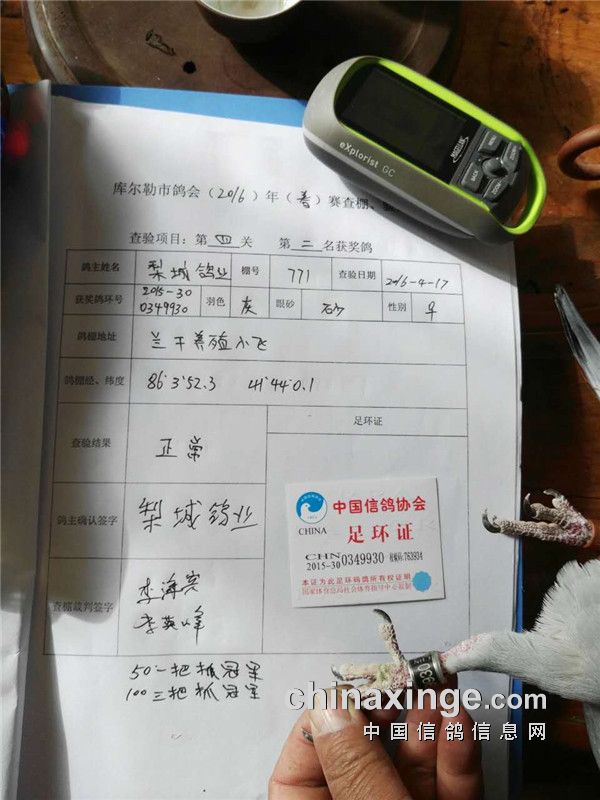 eXplorist GC
MAGELLAN
BACK
MENU
ZOOM
库尔勒市鸽会(2016)年(春)赛查棚、
查验项目:第 四 关 第 三 名获奖鸽
鸽主姓名 梨城鸽业 棚号 771 查验日期 2016-4-17
获奖鸽环号 2015-30 0349930 羽色 灰 眼砂 砂 性别 ♀
鸽棚地址 兰干养殖小飞
鸽棚经、纬度 86°3'52.3 41°44'0.1
足环证
查验结果 正常
鸽主确认签字 梨城鸽业
查棚裁判签字 李海宾
李英峰
中国信鸽协会
CHINA
足环证
CHN
2015-30 0349930 检索码:763934
本证为此足环码鸽所有权证明
国家体育总局社会体育指导中心监制
50一把抓冠军
100三把抓冠军
930
chinaxinge.com
中国信鸽信息网